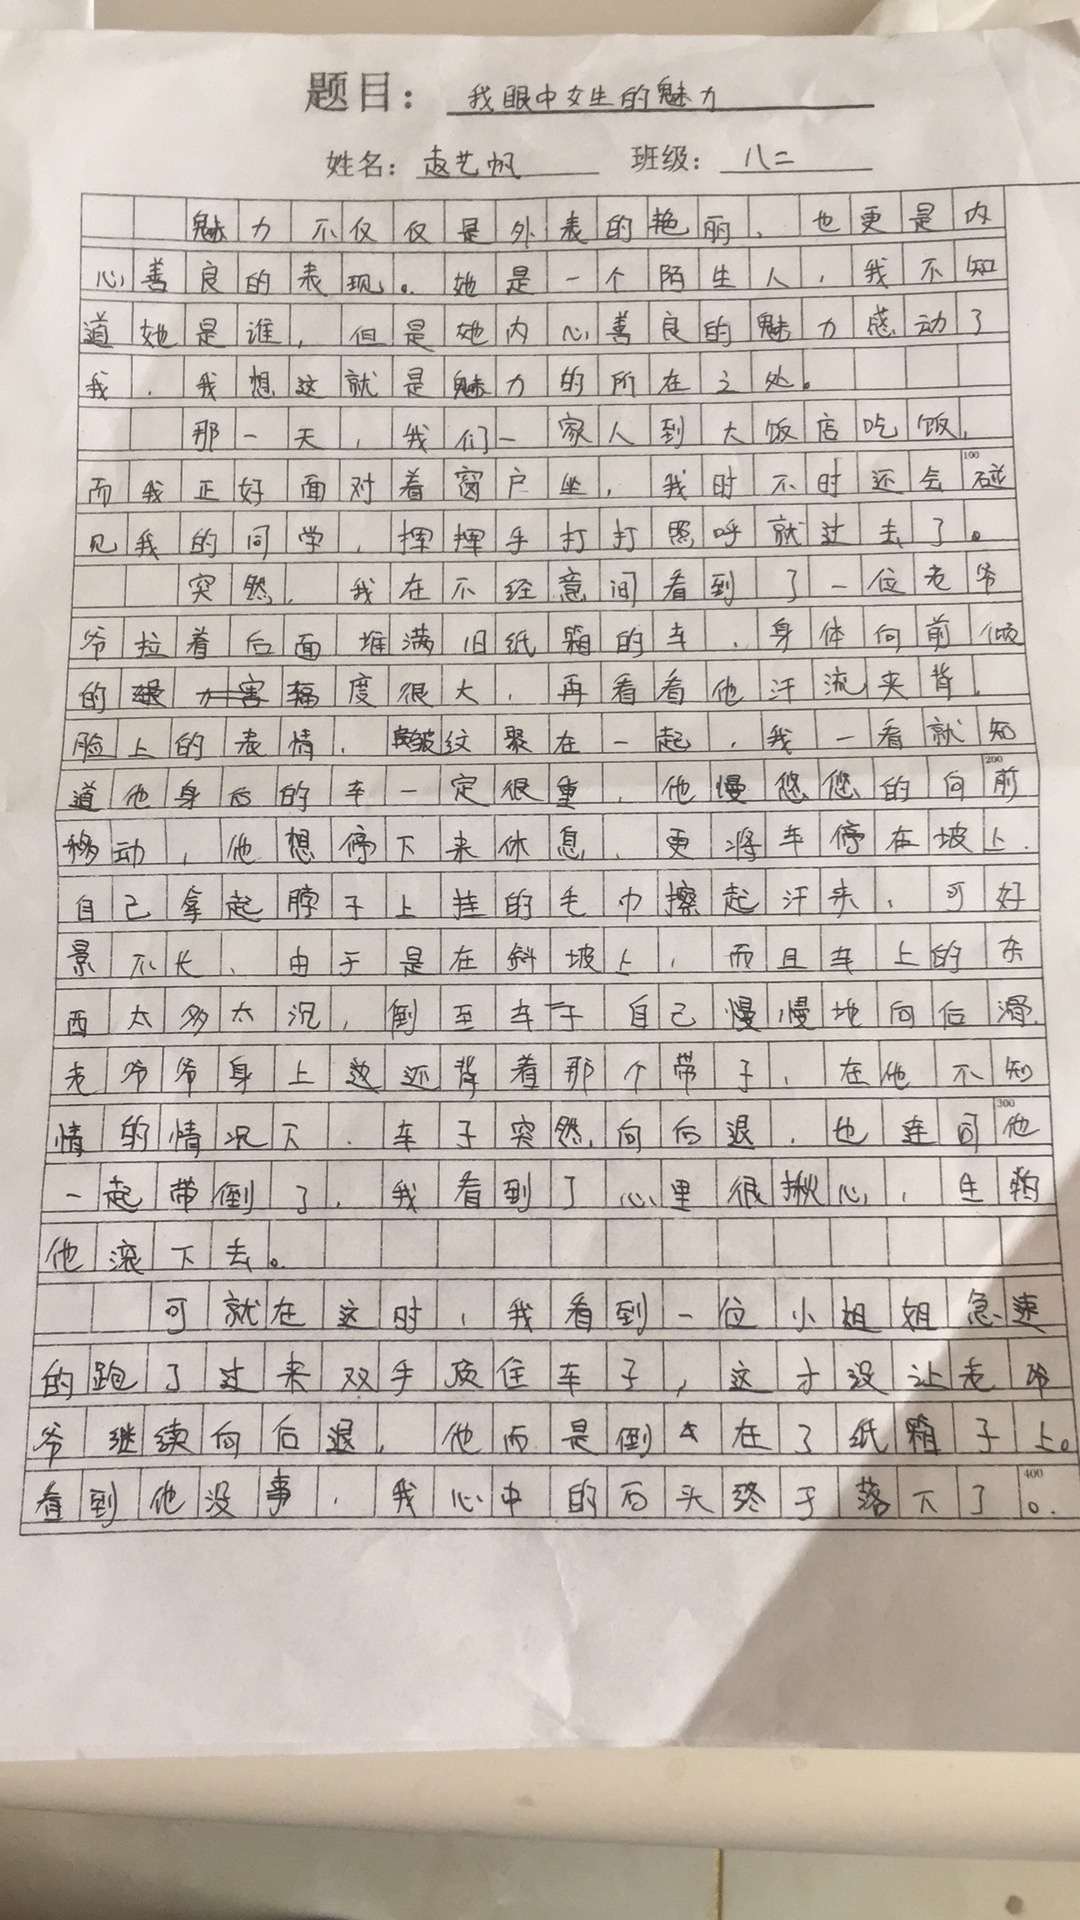 题目：我眼中女生的魅力
姓名：赵艺帆 班级：八二
魅力不仅仅是外表的艳丽，也更是内
心善良的表现。她是一个陌生人，我不知
道她是谁，但是她内心善良的魅力感动了
我，我想这就是魅力的所在之处。
那一天，我们一家人到大饭店吃饭，
而我正好面对着窗户坐，我时不时还会碰
100
见我的同学，挥挥手打打照呼就过去了。
突然，我在不经意间看到了一位老爷
爷拉着后面堆满旧纸箱的车，身体向前倾
的幅度很大，再看看他汗流夹背，
脸上的表情，皱纹聚在一起，我一看就知
道他身后的车一定很重，他慢悠悠的向前
200
移动，他想停下来休息，更将车停在坡上，
自己拿起脖子上挂的毛巾擦起汗来，可好
景不长，由于是在斜坡上，而且车上的东
西太多太沉，倒至车子自己慢慢地向后滑，
老爷爷身上这还背着那个带子，在他不知
情的情况下，车子突然向后退，也连同他
300
一起带倒了，我看到了心里很揪心，生怕
他滚下去。
可就在这时，我看到一位小姐姐急速
的跑了过来双手顶住车子，这才没让老爷
爷继续向后退，他而是倒在了纸箱子上。
看到他没事，我心中的石头终于落下了。
400